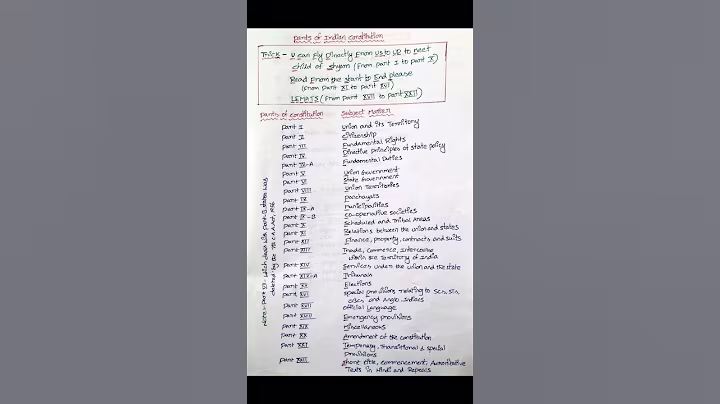 Parts of Indian constitution
TRICK - U can Fly Directly From US to UP to meet
child of shyam (From part I to part X)
Read From the Start to End please
(From part XI to part XVI)
LEMATS (From part XVII to part XXII)
Parts of constitution Subject Matter
Part I Union and its Territory
Part II Citizenship
Part III Fundamental Rights
Part IV Directive principles of state policy
Part IV-A Fundamental Duties
Part V Union Government
Part VI State Government
Part VIII Union Territories
Part IX Panchayats
Part IX-A Municipalities
Part IX-B Co-operative societies
Part X Scheduled and Tribal Areas
Part XI Relations between the union and states
Part XII Finance, property, contracts and suits
Part XIII Trade, commerce, Intercourse
within the territory of India
Part XIV Services under the union and the state
Part XIV-A Tribunals
Part XV Elections
Part XVI special provisions relating to SCs, STs,
OBCs and Anglo Indians
Part XVII Official Language
Part XVIII Emergency provisions
Part XIX Miscellaneous
Part XX Amendment of the constitution
Part XXI Temporary, Transitional & special
Provisions
Part XXII Short title, commencement, Authoritative
Texts in Hindi and Repeals
Note:- Part VII which deals with Part-B states was
deleted by the 7th CAA Act, 1956